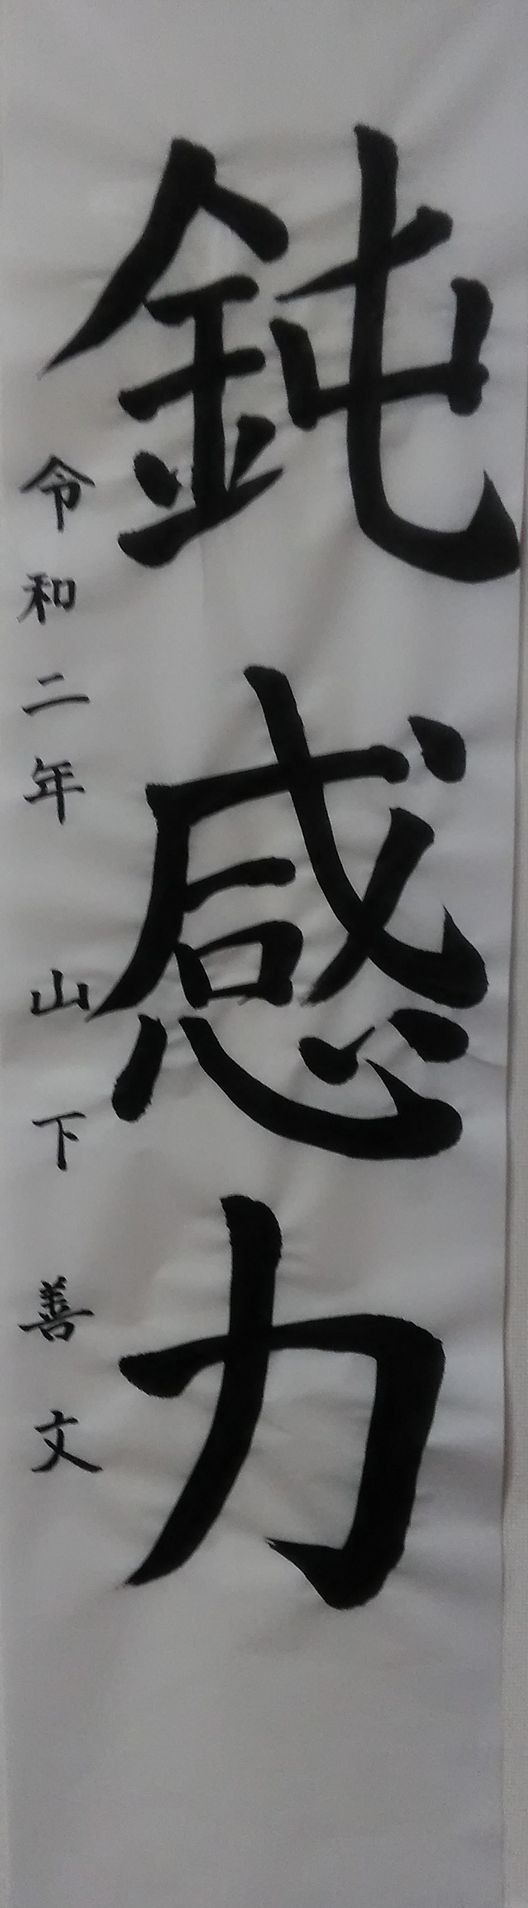 鈍感力
令和二年 山下善文